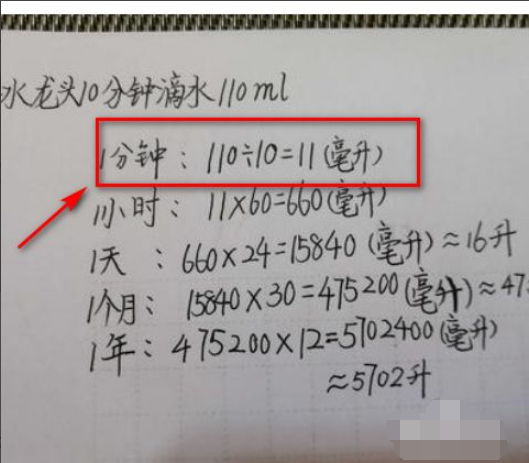 水龙头10分钟滴水110ml
1分钟：110÷10=11(毫升)
1小时：11×60=660(毫升)
1天：660×24=15840(毫升)≈16升
1个月：15840×30=475200(毫升)≈47
1年：475200×12=5702400(毫升)
≈5702升